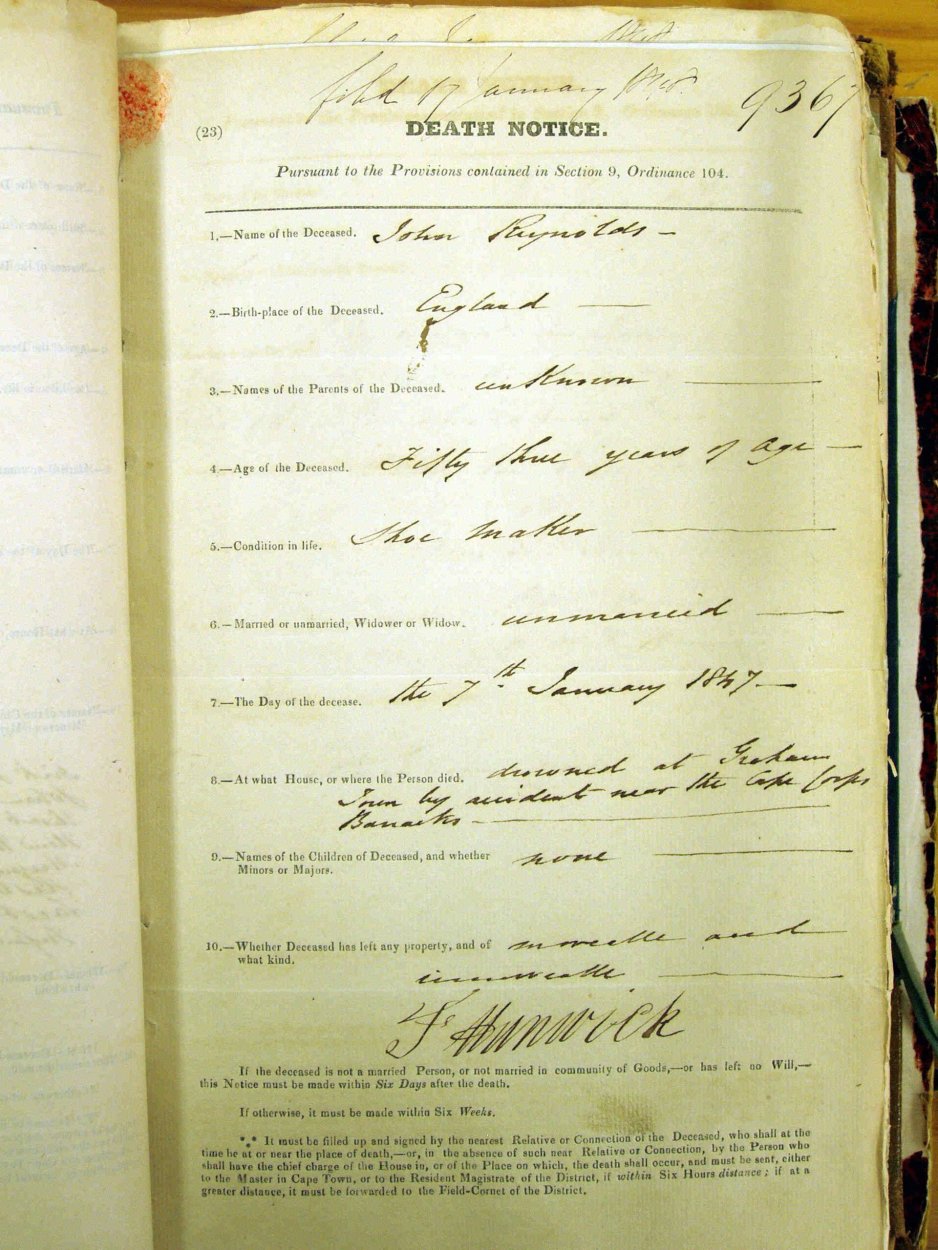 filed 17 January 1848.
9367
(23)
DEATH NOTICE.
Pursuant to the Provisions contained in Section 9, Ordinance 104.
1.—Name of the Deceased. John Reynolds —
2.—Birth-place of the Deceased. England —
3.—Names of the Parents of the Deceased. unKnown —
4.—Age of the Deceased. Fifty three years of age —
5.—Condition in life. Shoe maker —
6.—Married or unmarried, Widower or Widow. unmarried —
7.—The Day of the decease. the 7th January 1847 —
8.—At what House, or where the Person died. drowned at Grahams
Town by accident near the Cape Corps
Barracks —
9.—Names of the Children of Deceased, and whether none —
Minors or Majors.
10.—Whether Deceased has left any property, and of moveable and
what kind.
immoveable —
Hunwick
If the deceased is not a married Person, or not married in community of Goods,—or has left no Will,—
this Notice must be made within Six Days after the death.
If otherwise, it must be made within Six Weeks.
*.* It must be filled up and signed by the nearest Relative or Connection of the Deceased, who shall at the
time be at or near the place of death,—or, in the absence of such near Relative or Connection, by the Person who
shall have the chief charge of the House in, or of the Place on which, the death shall occur, and must be sent, either
to the Master in Cape Town, or to the Resident Magistrate of the District, if within Six Hours distance; if at a
greater distance, it must be forwarded to the Field-Cornet of the District.